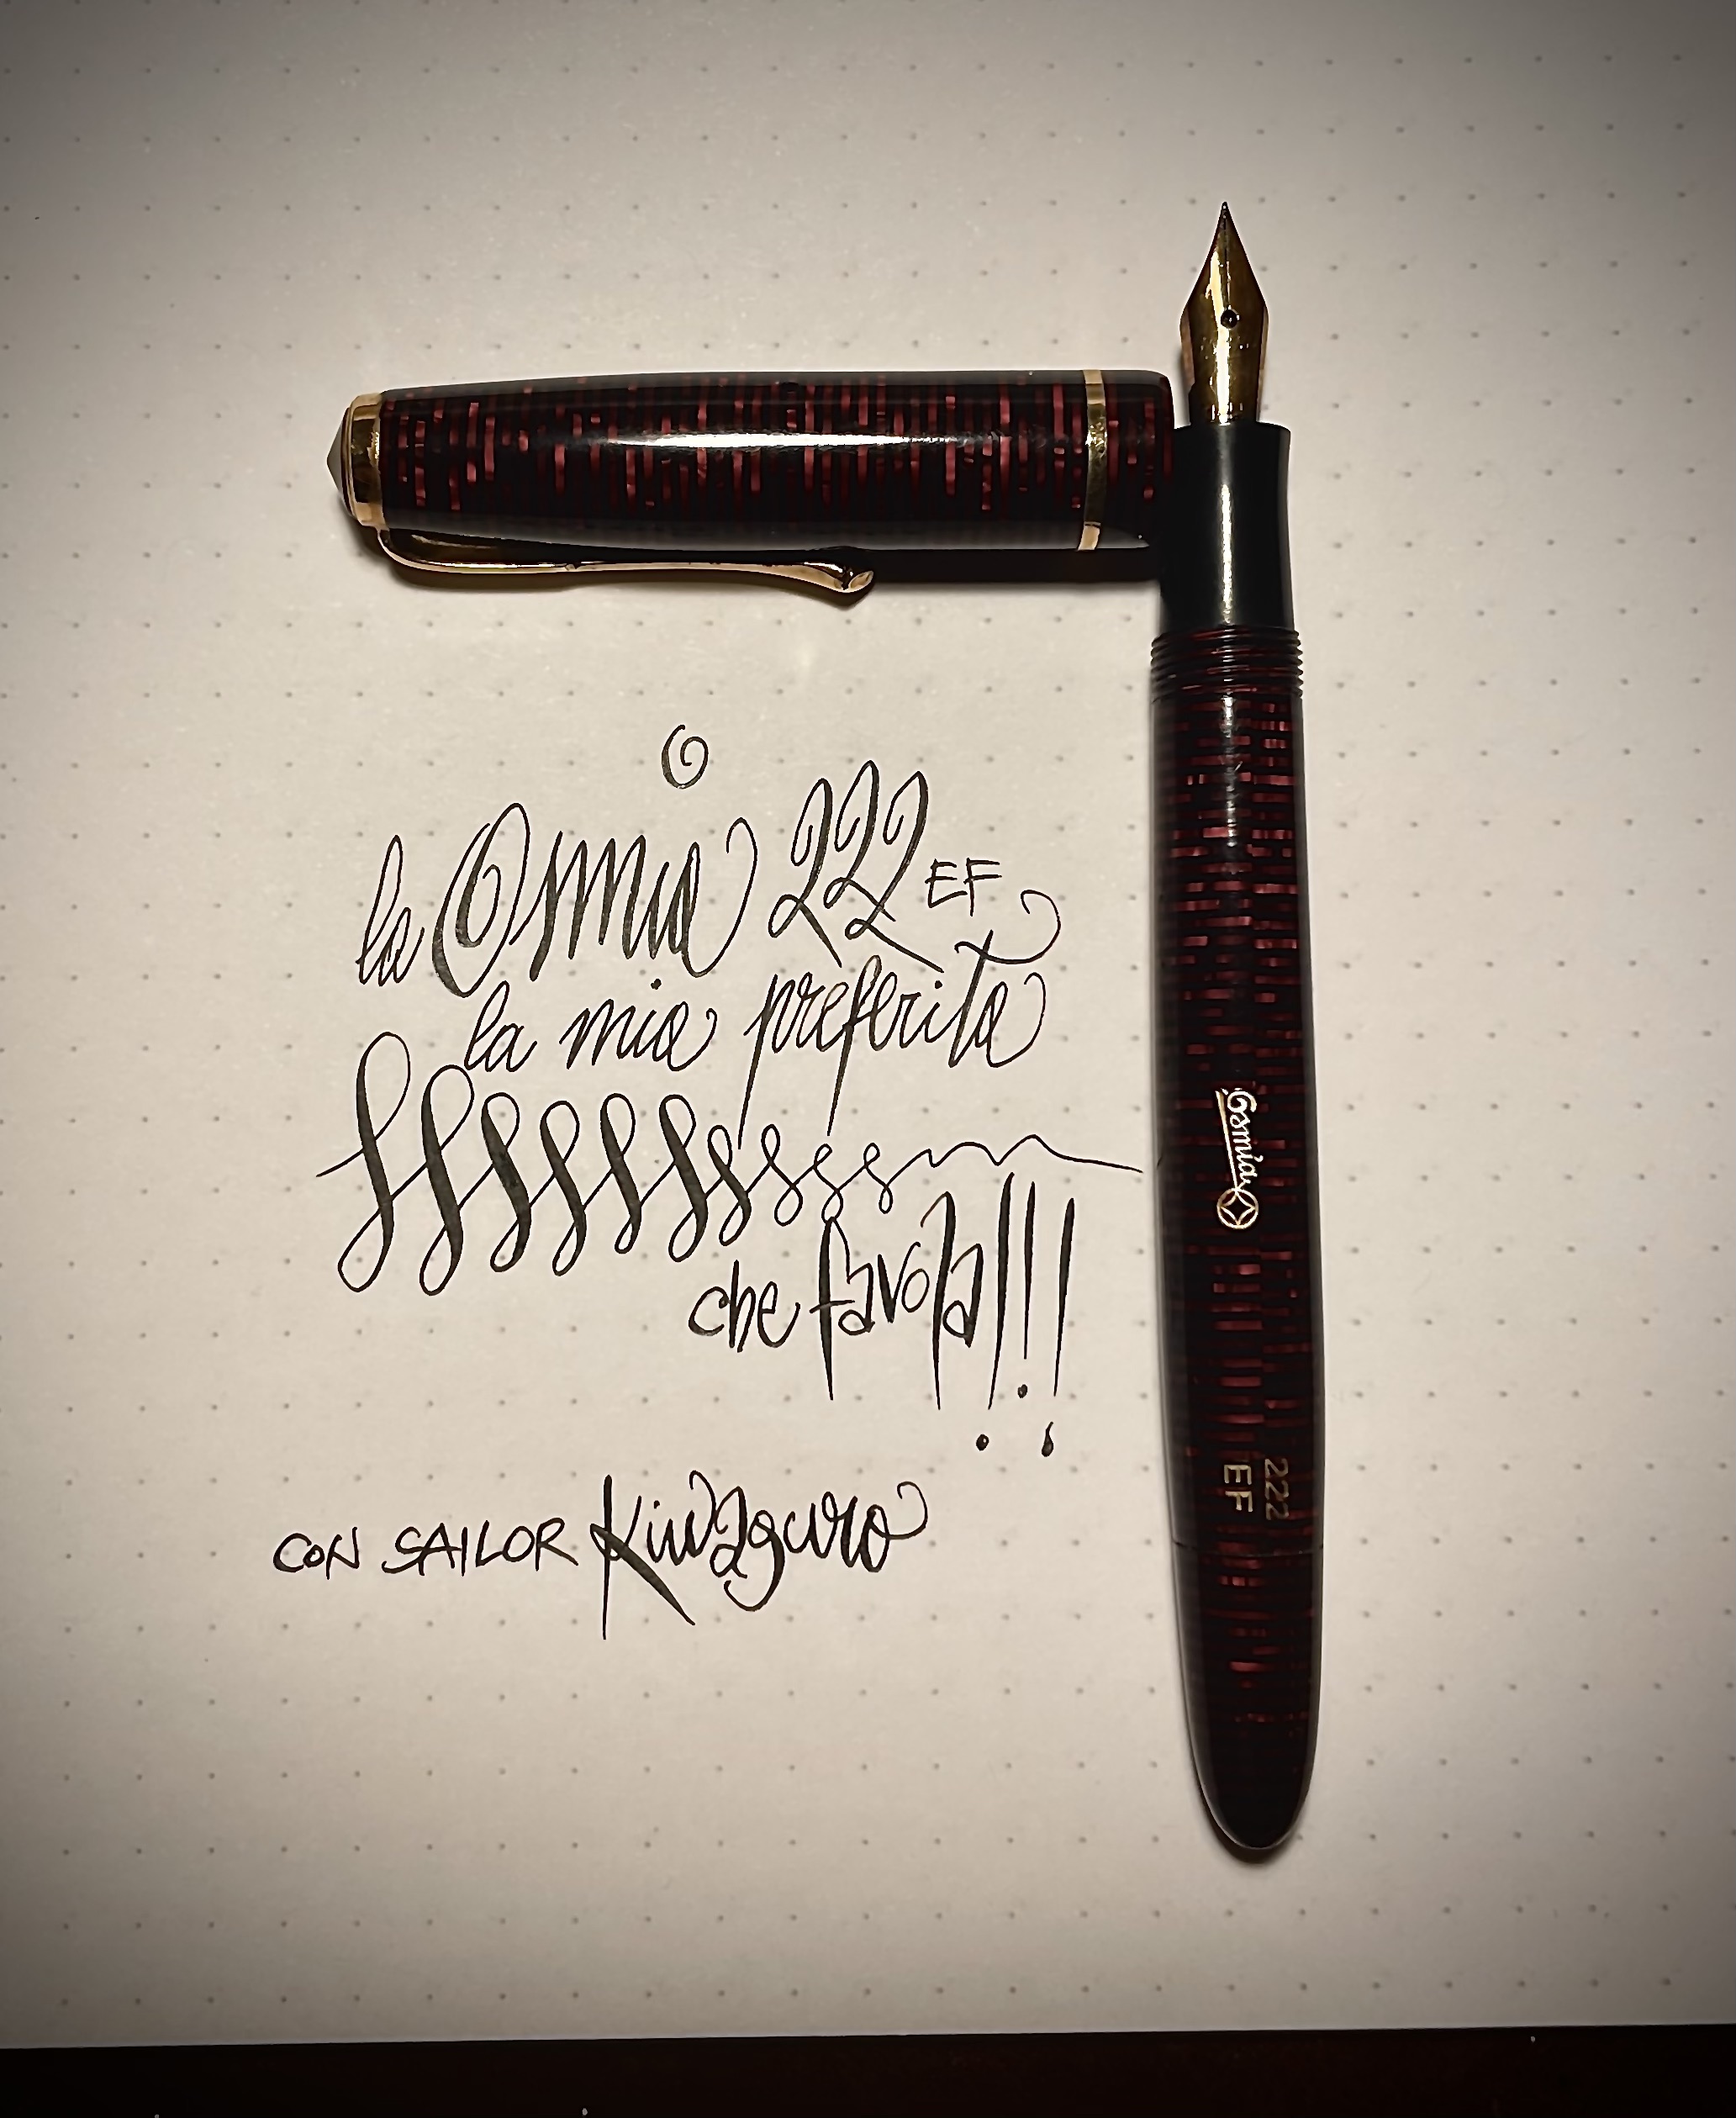 la Osmia 222 EF
la mia preferita
che favola!!!
CON SAILOR Kiwaguro
Osmia
222
EF